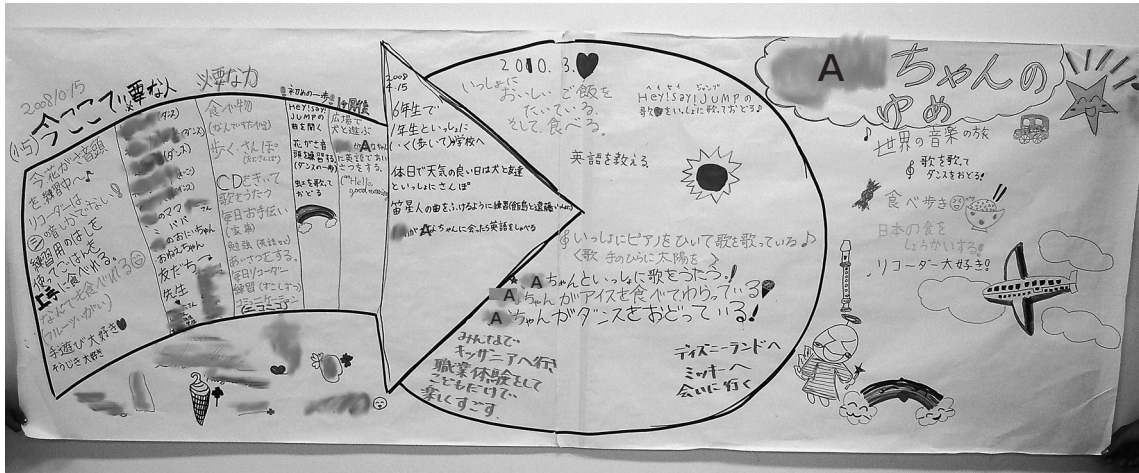 2008.10.15
今ここで
(小5)
今花がさ音頭
を練習中〜♪
リコーダーは
シの音いがいでない!
練習用のはしを
使ってごはんを
上手に食べれる。
なんでも食べれる
フルーツいがい
手遊び大好き
そうじき大好き
必要な人
(ダンス)
(ダンス)
のママ
パパ
のおにいちゃん
おねえちゃん
友だち
先生
必要な力
食べ物
(なんでも)
歩く、さんぽ
CDをきいて
歌をうたう
毎日お手伝い
(家事)
勉強(英語など)
あいさつをする。
毎日リコーダー
練習(すこしずつ)
コミュニケーション
(ニコニコ)
初めの一歩
Hey!Say!
JUMPの
曲を聞く
花がさ音
頭を練習する
(ダンスの一歩)
虹を歌って
おどる
1ヶ月後
広場で
犬と遊ぶ
Aちゃん
に英語であい
さつをする。
Hello,
good morning
2008
4.15
6年生で
1年生といっしょに
いく(歩いて)学校へ
休日で天気の良い日は犬と友達
といっしょにさんぽ
笛星人の曲をふけるように練習
が Aちゃんに会ったら英語をしゃべる
2010.3.
いっしょに
おいしいご飯を
たいている。
そして、食べる。
へい せい ジャンプ
Hey!Say!JUMPの
歌をいっしょに歌っておどる♪
英語を教える
いっしょにピアノをひいて歌を歌っている♪
<歌 手のひらに太陽を>
★、Aちゃんといっしょに歌をうたう!
Aちゃんがアイスを食べてわらっている
Aちゃんがダンスをおどっている!
みんなで
キッザニアへ行き
職業体験をして
こどもだけで
楽しくすごす。
ディズニーランドへ
ミッキーへ
会いに行く
A ちゃんの
ゆめ
♪世界の音楽の旅
歌を歌って
ダンスをおどる!
食べ歩き
日本の食を
しょうかいする!
♪リコーダー大好き!